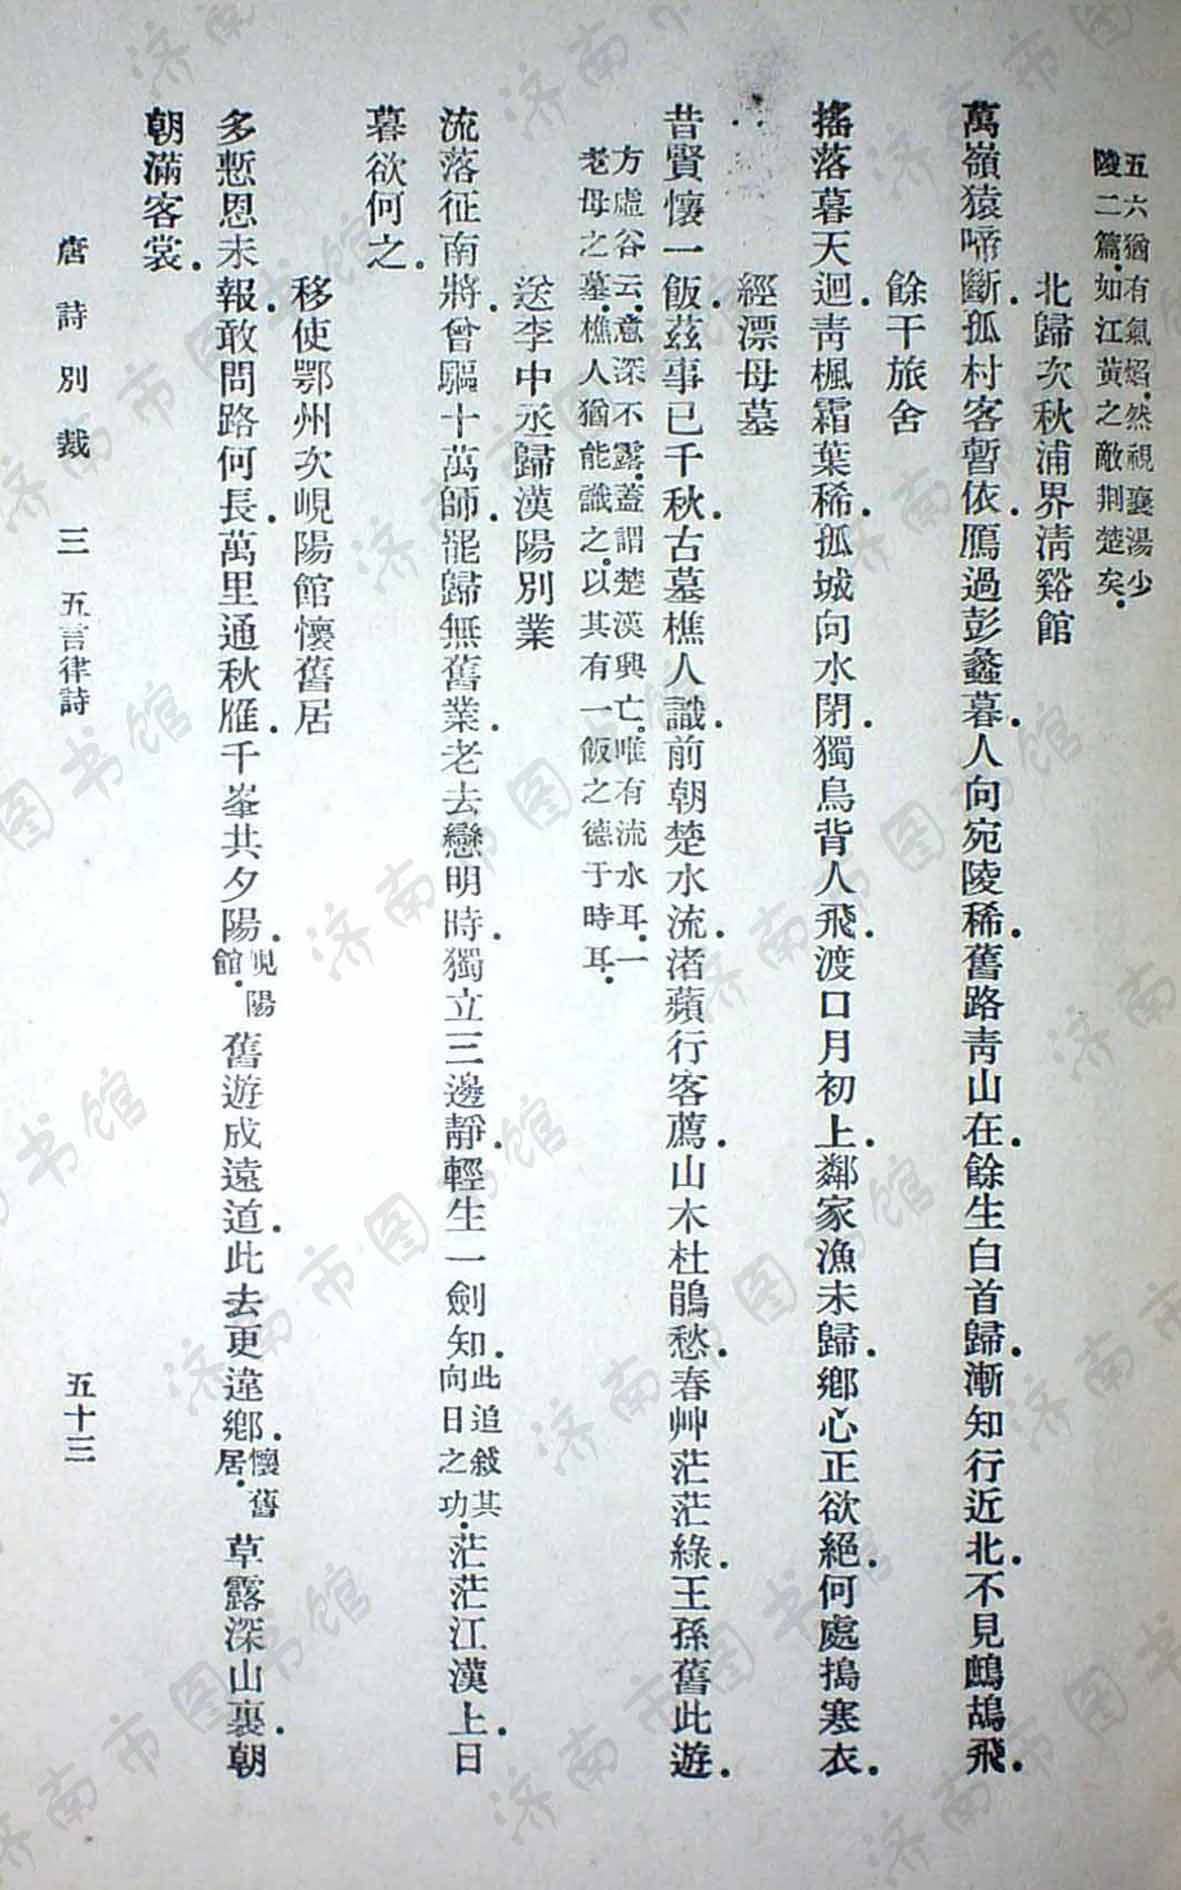 五六猶有氣焰.然視襄湯少
陵二篇.如江黃之敵荆楚矣.
北歸次秋浦界淸谿館
萬嶺猿啼斷.孤村客暫依.鴈過彭蠡暮.人向宛陵稀.舊路靑山在.餘生白首歸.漸知行近北.不見鷓鴣飛.
餘干旅舍
搖落暮天迥.靑楓霜葉稀.孤城向水閉.獨鳥背人飛.渡口月初上.鄰家漁未歸.鄉心正欲絕.何處搗寒衣.
經漂母墓
昔賢懷一飯.茲事已千秋.古墓樵人識.前朝楚水流.渚蘋行客薦.山木杜鵑愁.春艸茫茫綠.王孫舊此遊.
方虛谷云.意深不露.蓋謂楚漢興亡.唯有流水耳.一
老母之墓.樵人猶能識之.以其有一飯之德于時耳.
送李中丞歸漢陽別業
流落征南將.曾驅十萬師.罷歸無舊業.老去戀明時.獨立三邊靜.輕生一劍知.此追敍其向日之功.茫茫江漢上.日
暮欲何之.
移使鄂州次峴陽館懷舊居
多慙恩未報.敢問路何長.萬里通秋雁.千峯共夕陽.峴陽館.舊遊成遠道.此去更違鄉.懷舊居.草露深山裏.朝
朝滿客裳.
唐詩別裁 三 五言律詩 五十三
濟南市图书馆